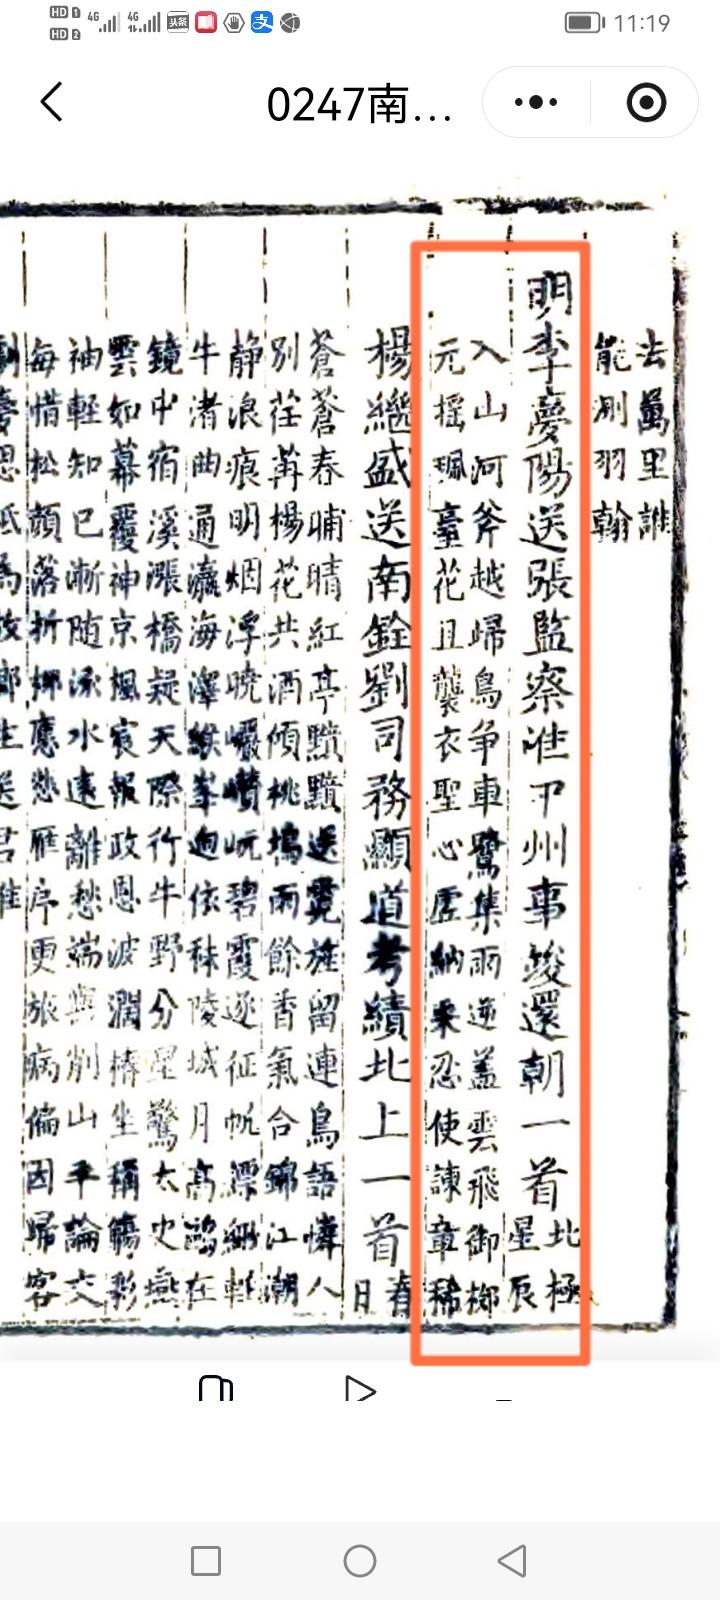 HD 1 4G 4G 头条 支 11:19
HD 2
0247南…
法萬里誰
能刷羽翰
明李夢陽送張監察淮甲州事竣還朝一首 北極
星辰
入山河斧越歸鳥争車鷺集雨逆盖雲飛御柳
元摇珮臺花且襲衣聖心虚納耒忍使諫章稀
楊繼盛送南銓劉司務顯道考績北上一首 春
日
蒼蒼春晡晴紅亭黯黯送霓旌留連鳥語憐人
别荏苒楊花共酒傾桃塢雨餘香氣合錦江潮
静浪痕明烟浮曉巘嶙岏碧霞逐征帆漂緲郵
牛渚曲通瀛海澤緱峯逈依秣陵城月高鴻在
鏡中宿溪漲橋疑天際行牛野分星驚太史燕
雲如幕覆神京楓宸報政恩波濶椿坐稱觴彩
袖輕知已漸随流水遠離愁端與削山平論交
每惜松顔落折柳應愁雁序更旅病偏因歸客